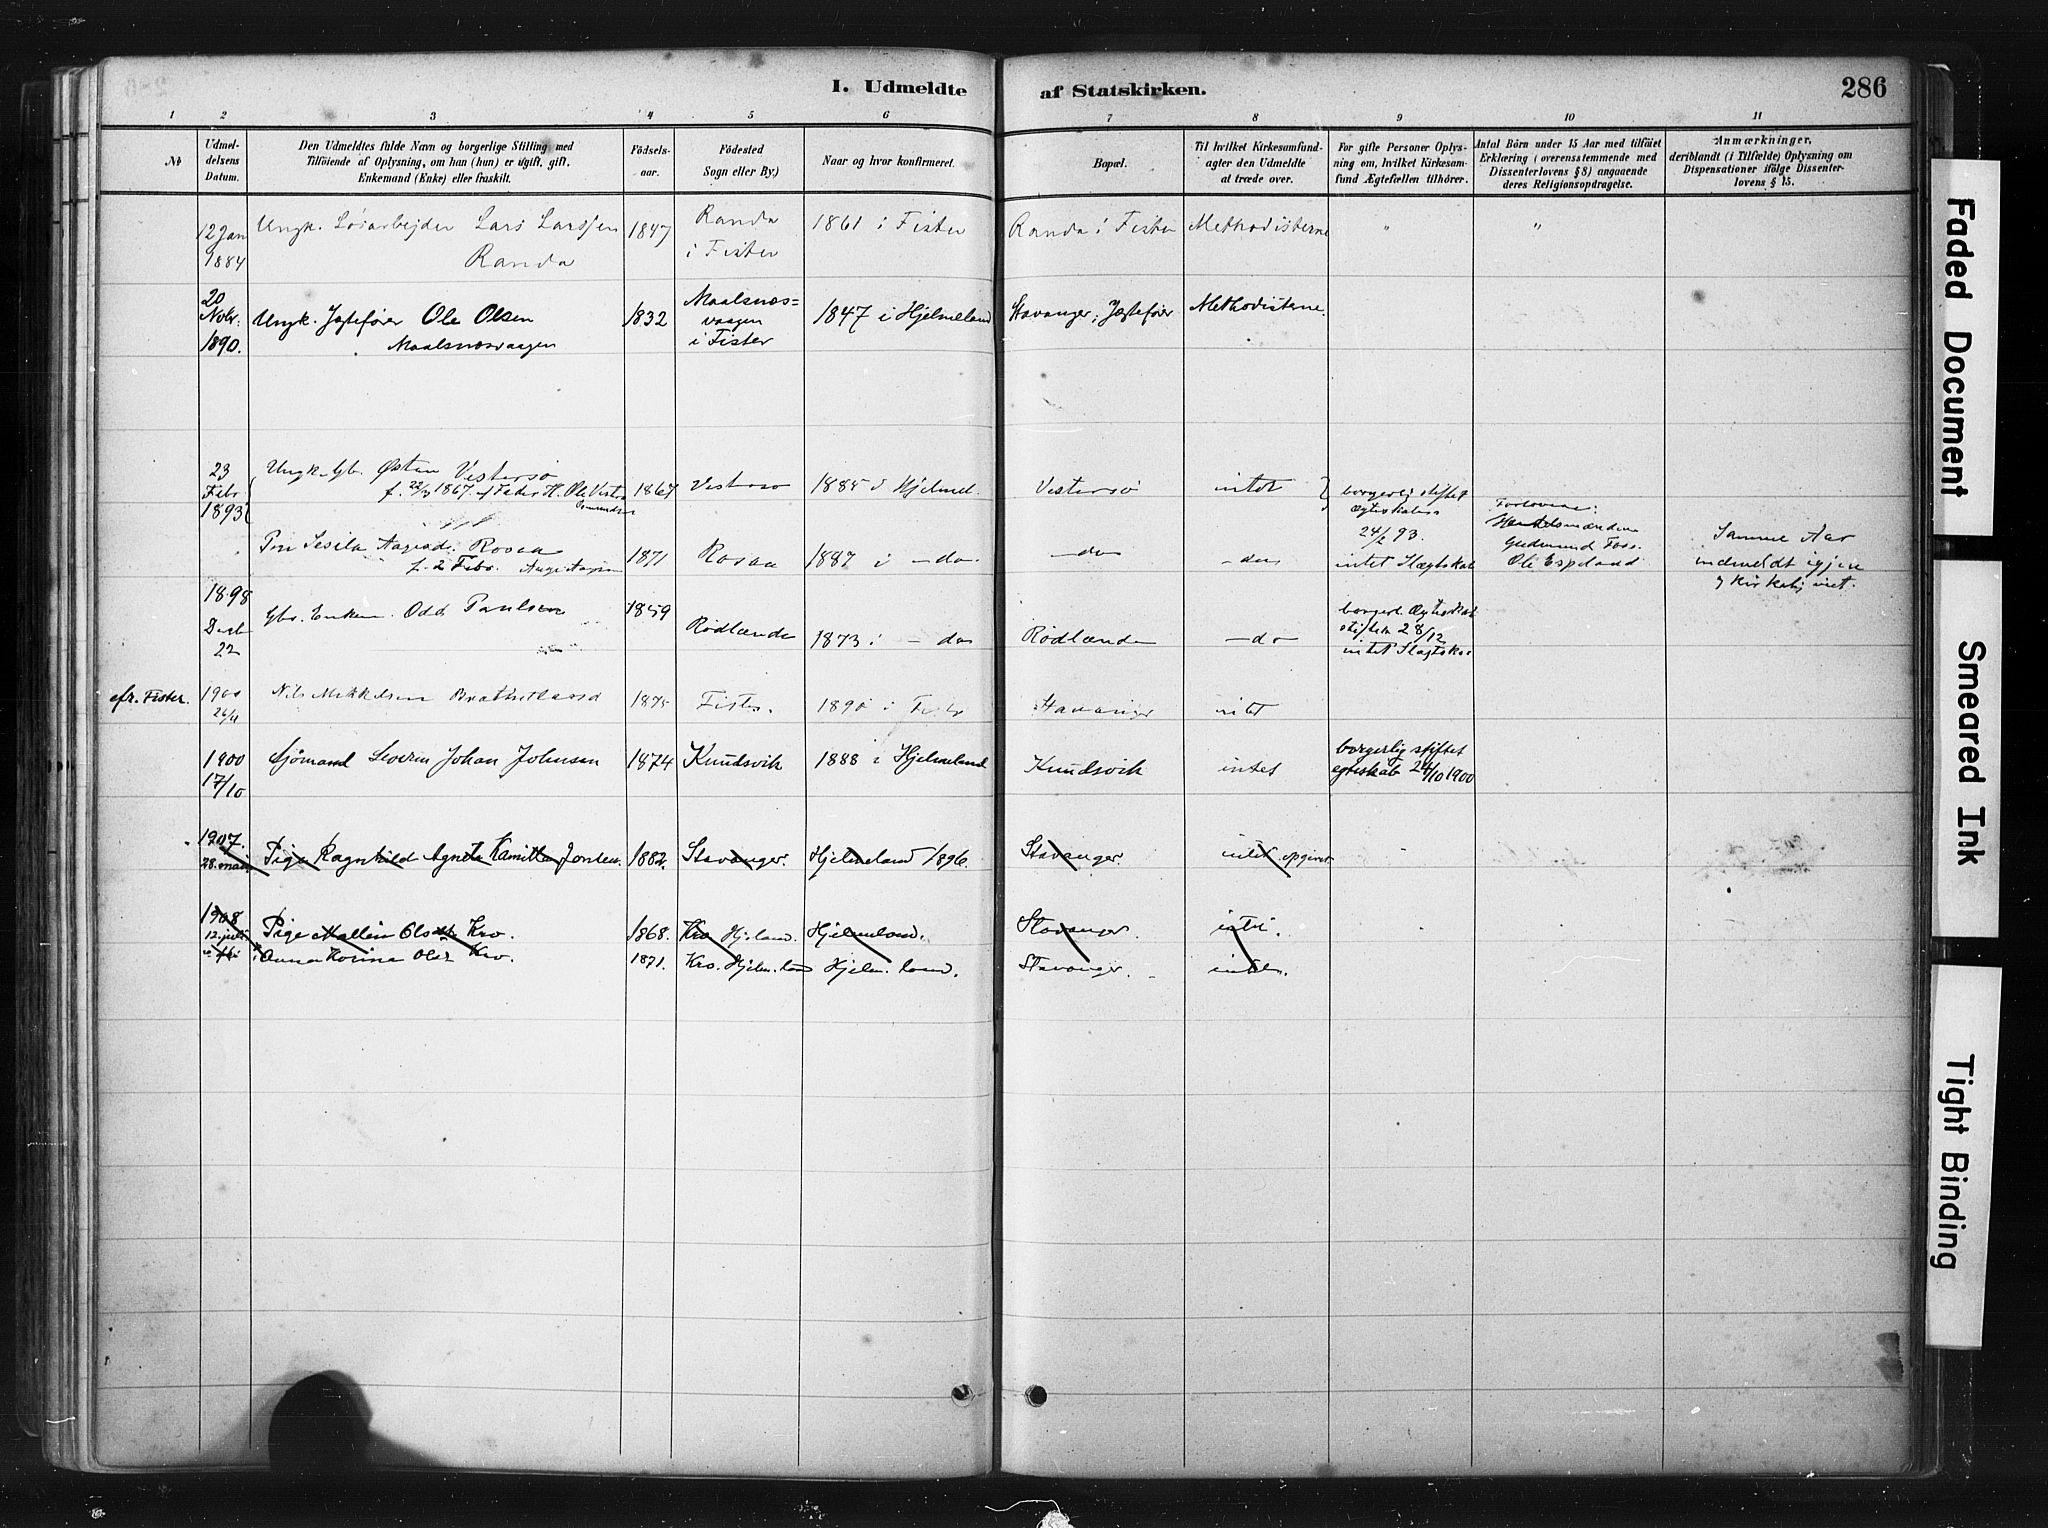 I. Udmeldte af Statskirken.
286
1 2 3 4 5 6 7 8 9 10 11
№
Udmel-
delsens
Datum.
Den Udmeldtes fulde Navn og borgerlige Stilling med
Tilföiende af Oplysning, om han (hun) er ugift, gift,
Enkemand (Enke) eller fraskilt.
Födsels-
aar.
Födested
Sogn eller By.)
Naar og hvor konfirmeret.
Bopæl.
Til hvilket Kirkesamfund-
agter den Udmeldte
at træde over.
For gifte Personer Oplys-
ning om, hvilket Kirkesam-
fund Ægtefællen tilhörer.
Antal Börn under 15 Aar med tilföiet
Erklæring (overensstemmende med
Dissenterlovens § 8) angaaende
deres Religionsopdragelse.
Anmærkninger,
deriblandt (i Tilfælde) Oplysning om
Dispensationer ifölge Dissenter-
lovens § 15.
12 Jan
1884
Ungk. Løsarbejder Lars Larssen
Randa
1847
Randa
i Fister
1861 i Fister
Randa i Fister
Methodisterne
"
"
20
Novbr.
1890.
Ungk. Jægtefører Ole Olsen
Maalsnæsvaagen
1832
Maalsnæs=
vaagen
i Fister
1847 i Hjelmeland
Stavanger, Jægtefører
Methodisterne.
23
Febr
1893
Ungk. Gb. Østen Vestersø
f. 22/3 1867 af Fader
1867
Vestersø
1885 i Hjelmel.
Vestersø
intet
borgerlig stiftet
Ægteskab
24/2 93.
intet Slægtskab
Forlovere:
Gudmund Foss.
Ole Espeland
Rosaa
f. 2 Febr.
1871
Rosaa
1887 i -do-
-do-
-do-
Samme Aar
indmeldt igjen
1898
Decbr
22
Gbr. Enkem. Odd Paulsen
1859
Rødlænde
1873 i -do-
Rødlænde
-do-
borgerl. Ægteskab
stiftet 28/12
intet Slagtskab
afr. Fister.
1900
26/4
Nils Mikkelsen
1875
Fister.
1890 i Fister
Stavanger
intet
1900
17/10
Sjømand Severin Johan Johnsen
1874
Knudsvik
1888 i Hjelmeland
Knudsvik
intet
borgerlig stiftet
egteskab 24/10 1900
1907.
28. mai
Pige Ragnhild Agneta Kamilla
1882.
Stavanger.
Hjelmeland 1896.
Stavanger.
intet opgivet
1908
12. juli
Pige Mallin Olsdtr Kro.
1868.
Kro Hjeland.
Hjelmeland.
Stavanger.
Anna Korina Olsdr Kro.
1871.
Kro. Hjelm.land
Hjelm.land.
Stavanger.
intet.
Faded Document
Smeared Ink
Tight Binding